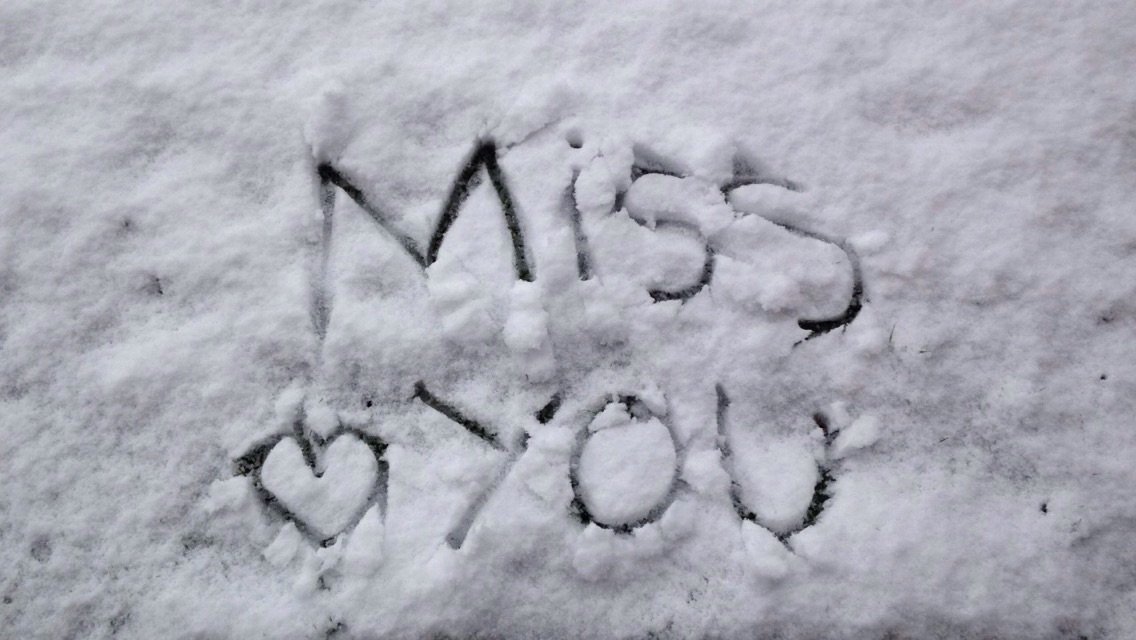 MiSS
♡YOU